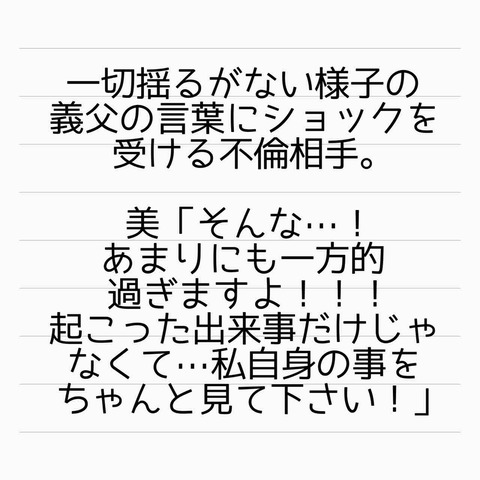 一切揺るがない様子の
義父の言葉にショックを
受ける不倫相手。
美「そんな…！
あまりにも一方的
過ぎますよ！！！
起こった出来事だけじゃ
なくて…私自身の事を
ちゃんと見て下さい！」